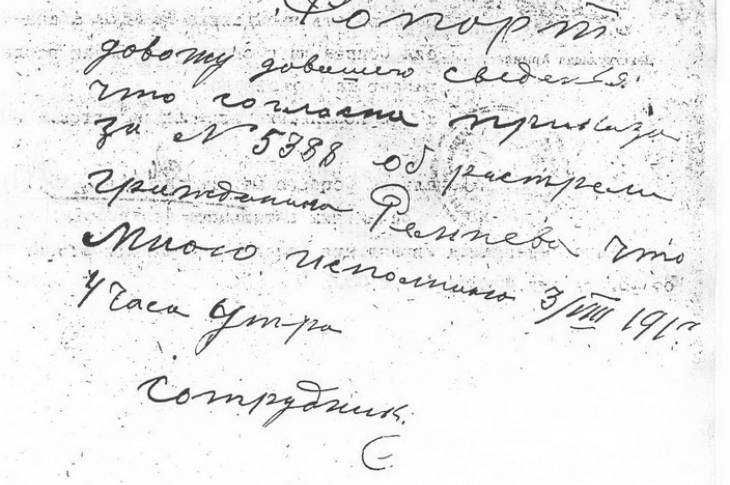 Ропорт
довожу довашего сведенья
что согласна приказа
за N 5388 об растрели
гражданина Ремнева что
Мною исполнино 3/VIII 191
4 часа утра
сотрудник.